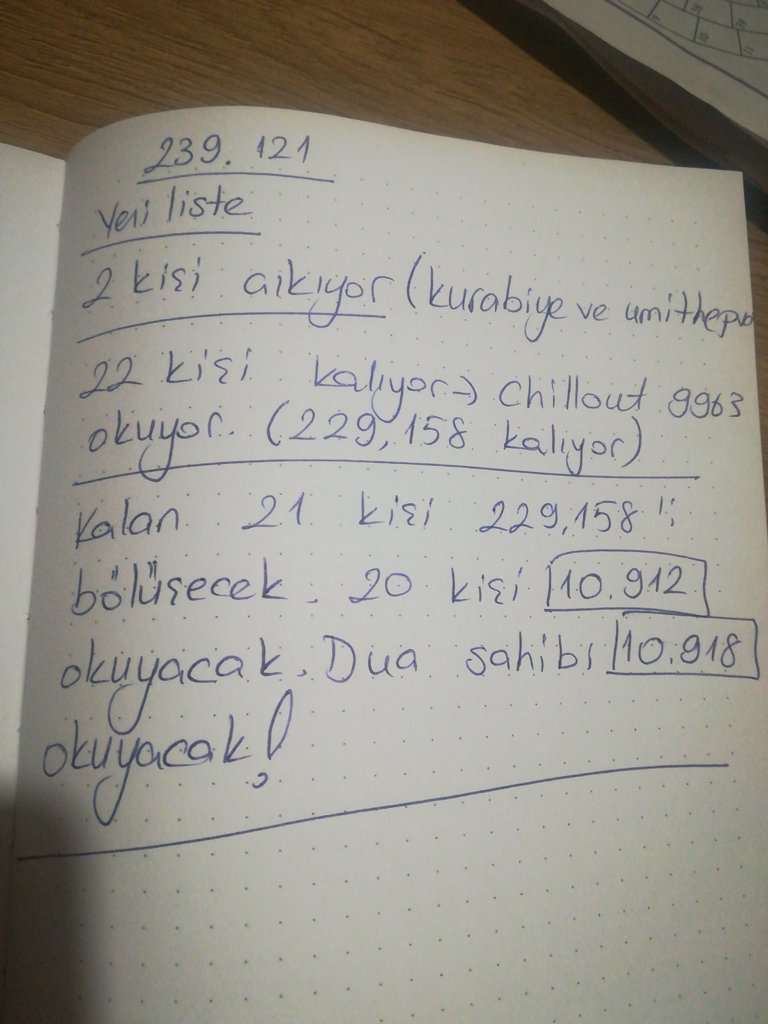 239.121
Yeni liste
2 kişi çıkıyor (kurabiye ve umithepva
22 kişi kalıyor → Chillout 9963
okuyor. (229,158 kalıyor)
Kalan 21 kişi 229,158'i
bölüşecek. 20 kişi 10.912
okuyacak. Dua sahibi 10.918
okuyacak!